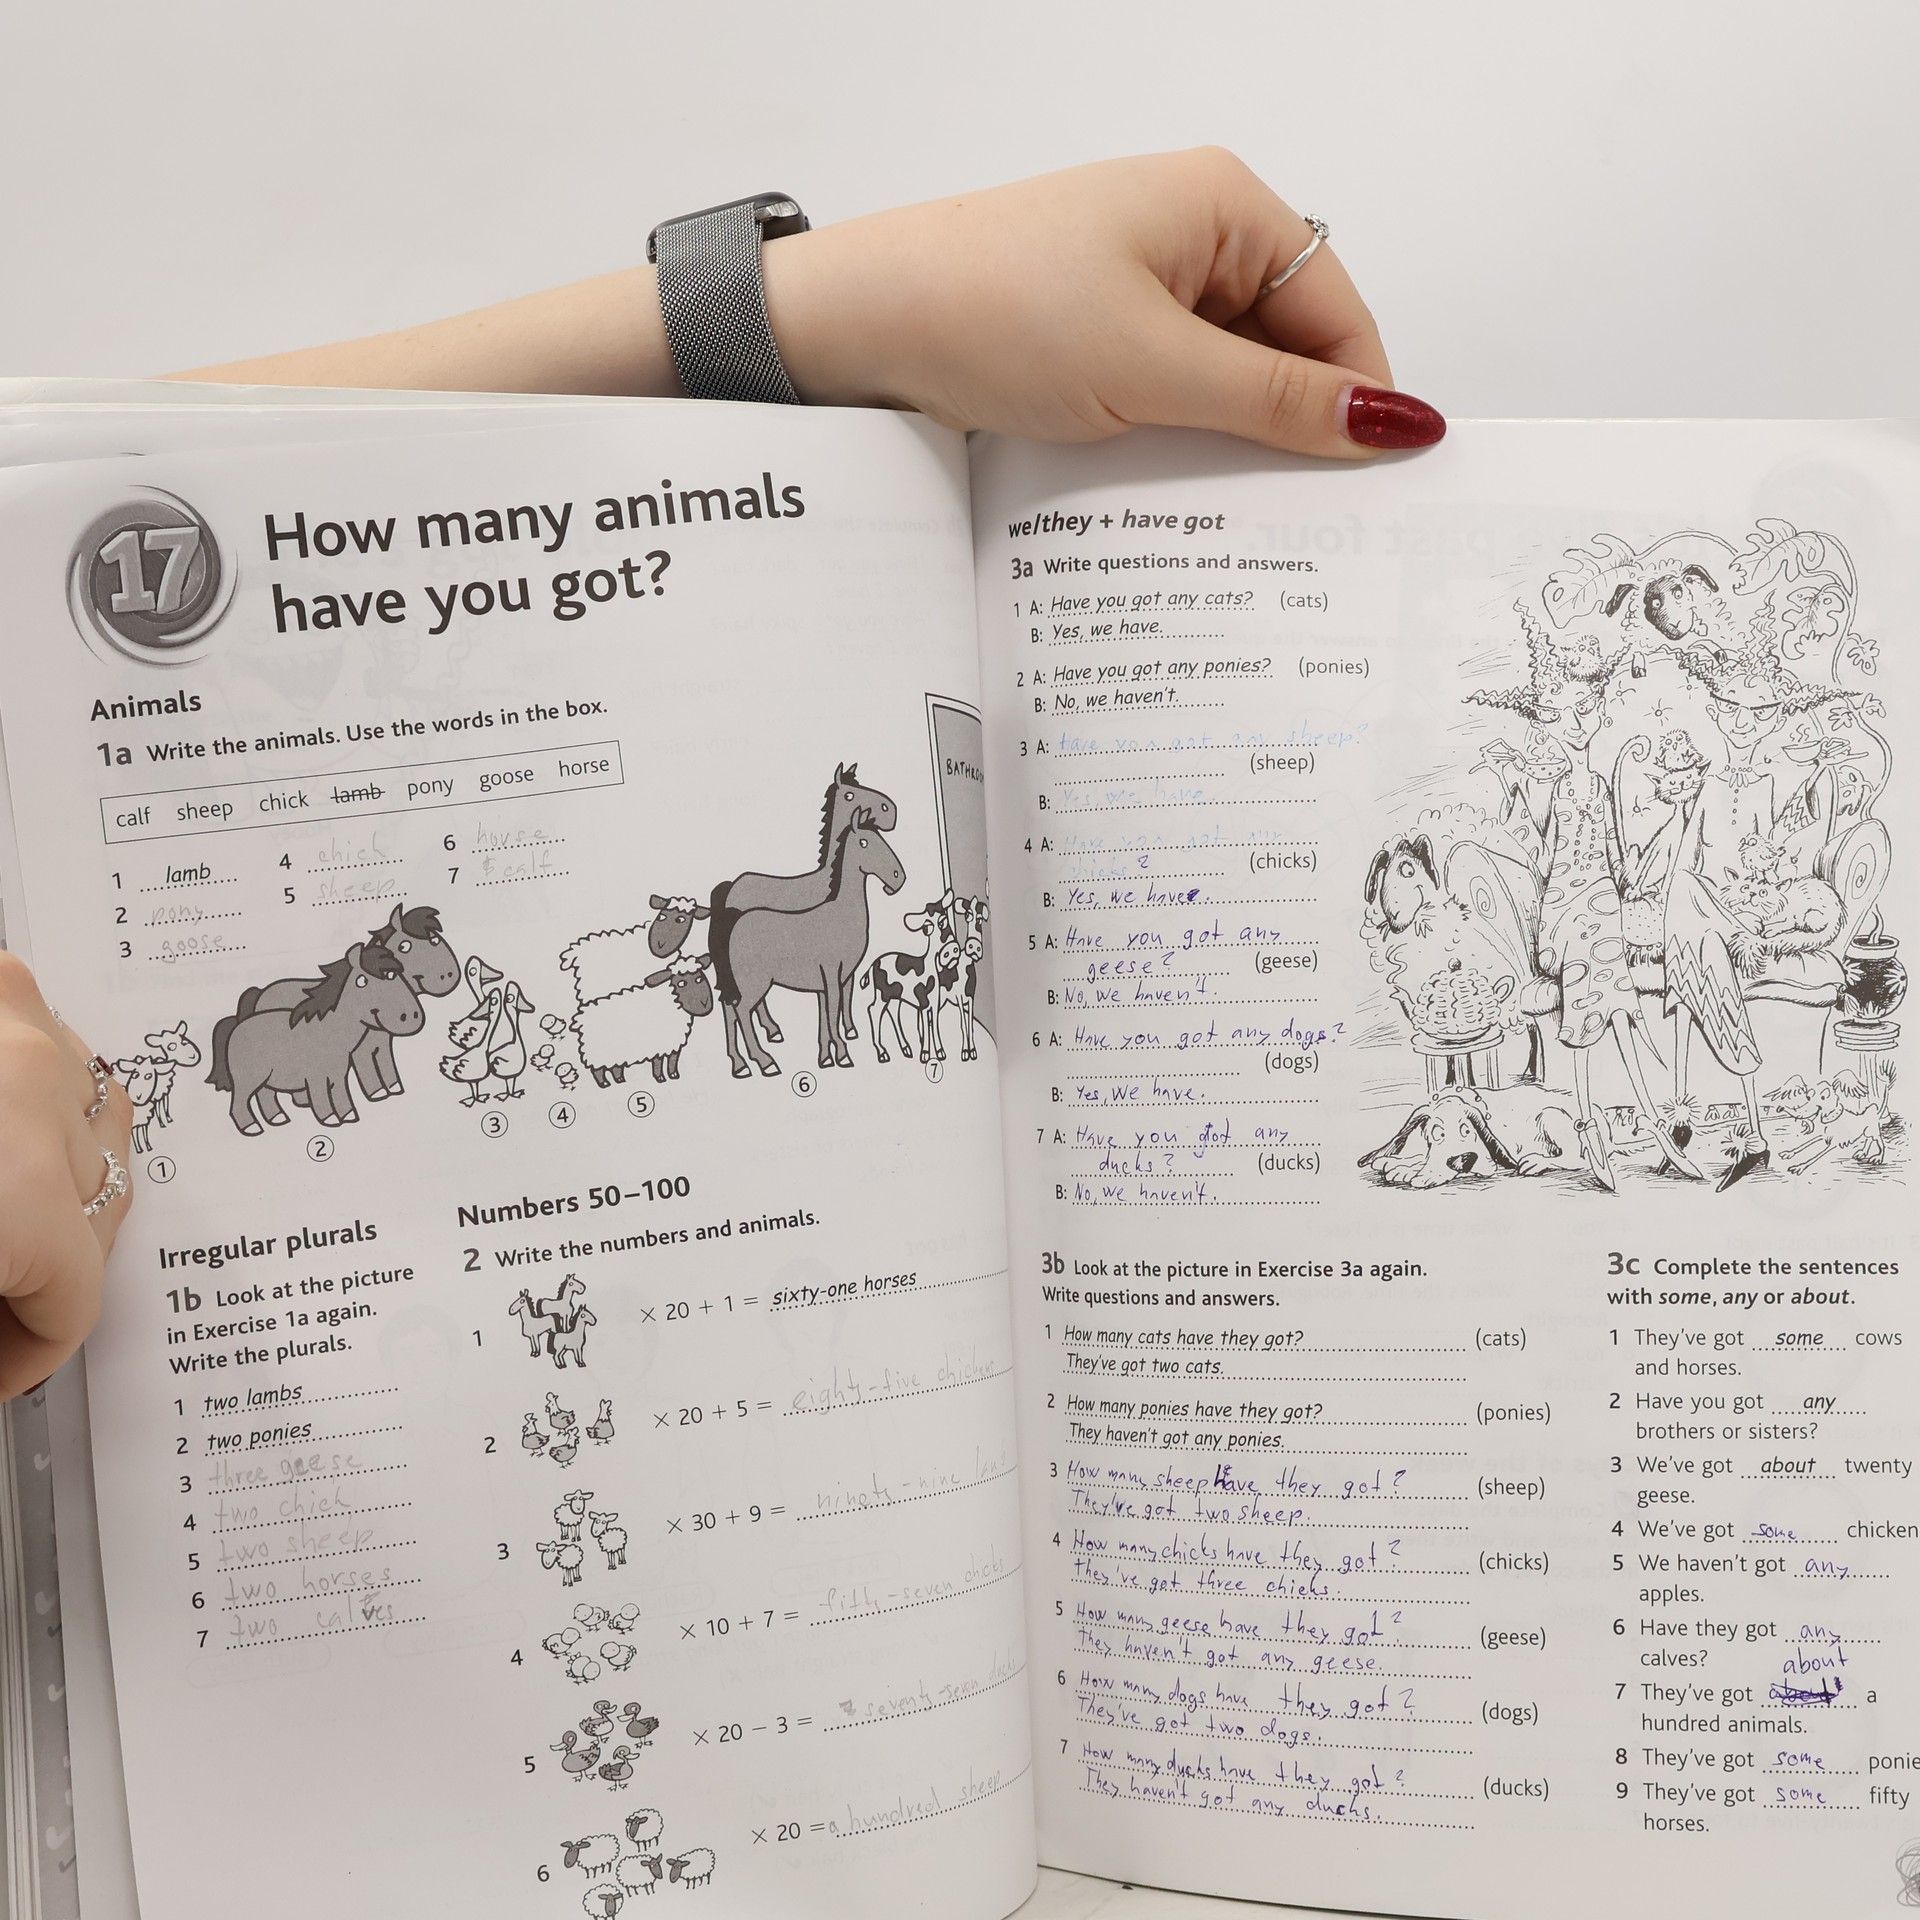 17
How many animals
have you got?
Animals
1a Write the animals. Use the words in the box.
calf sheep chick lamb pony goose horse
1 lamb
2 pony
3 goose
4 chick
5 sheep
6 horse
7 calf
BATHROO
1
2
3
4
5
6
7
Irregular plurals
1b Look at the picture
in Exercise 1a again.
Write the plurals.
1 two lambs
2 two ponies
3 three geese
4 two chick
5 two sheep
6 two horses
7 two calves
Numbers 50–100
2 Write the numbers and animals.
1 × 20 + 1 = sixty-one horses
2 × 20 + 5 = eighty-five chickens
3 × 30 + 9 = ninety-nine
4 × 10 + 7 = fifty-seven chicks
5 × 20 – 3 = seventy-seven ducks
6 × 20 = a hundred sheep
we/they + have got
3a Write questions and answers.
1 A: Have you got any cats? (cats)
B: Yes, we have.
2 A: Have you got any ponies? (ponies)
B: No, we haven't.
3 A: Have you got any sheep?
(sheep)
B: Yes, we have.
4 A: Have you got any
chicks? (chicks)
B: Yes, we have.
5 A: Have you got any
geese? (geese)
B: No, we haven't.
6 A: Have you got any dogs?
(dogs)
B: Yes, We have.
7 A: Have you got any
ducks? (ducks)
B: No, we haven't.
3b Look at the picture in Exercise 3a again.
Write questions and answers.
1 How many cats have they got? (cats)
They've got two cats.
2 How many ponies have they got? (ponies)
They haven't got any ponies.
3 How many sheep have they got? (sheep)
They've got two sheep.
4 How many chicks have they got? (chicks)
They've got three chicks.
5 How many geese have they got? (geese)
They haven't got any geese.
6 How many dogs have they got? (dogs)
They've got two dogs.
7 How many ducks have they got? (ducks)
They haven't got any ducks.
3c Complete the sentences
with some, any or about.
1 They've got some cows
and horses.
2 Have you got any
brothers or sisters?
3 We've got about twenty
geese.
4 We've got some chicken
5 We haven't got any
apples.
6 Have they got any
calves?
about
7 They've got about a
hundred animals.
8 They've got some ponie
9 They've got some fifty
horses.